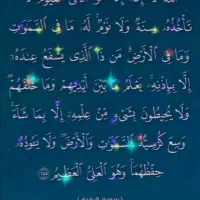 تَأْخُذُهُۥ سِنَةٌ وَلَا نَوْمٌ لَّهُۥ مَا فِى ٱلسَّمَٰوَٰتِ
وَمَا فِى ٱلْأَرْضِ مَن ذَا ٱلَّذِى يَشْفَعُ عِندَهُۥٓ
إِلَّا بِإِذْنِهِۦ يَعْلَمُ مَا بَيْنَ أَيْدِيهِمْ وَمَا خَلْفَهُمْ
وَلَا يُحِيطُونَ بِشَىْءٍ مِّنْ عِلْمِهِۦٓ إِلَّا بِمَا شَآءَ
وَسِعَ كُرْسِيُّهُ ٱلسَّمَٰوَٰتِ وَٱلْأَرْضَ وَلَا يَـُٔودُهُۥ
حِفْظُهُمَا وَهُوَ ٱلْعَلِىُّ ٱلْعَظِيمُ ٢٥٥
(سورة البقرة)